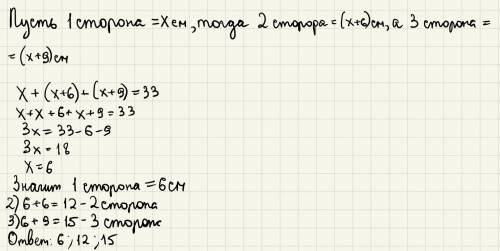 Пусть 1 сторона = x см, тогда 2 сторора = (x+6) см, а 3 сторона =
= (x+9) см
x + (x+6) + (x+9) = 33
x + x + 6 + x + 9 = 33
3x = 33 - 6 - 9
3x = 18
x = 6
Значит 1 сторона = 6 см
2) 6 + 6 = 12 - 2 сторона
3) 6 + 9 = 15 - 3 сторона
Ответ: 6; 12; 15